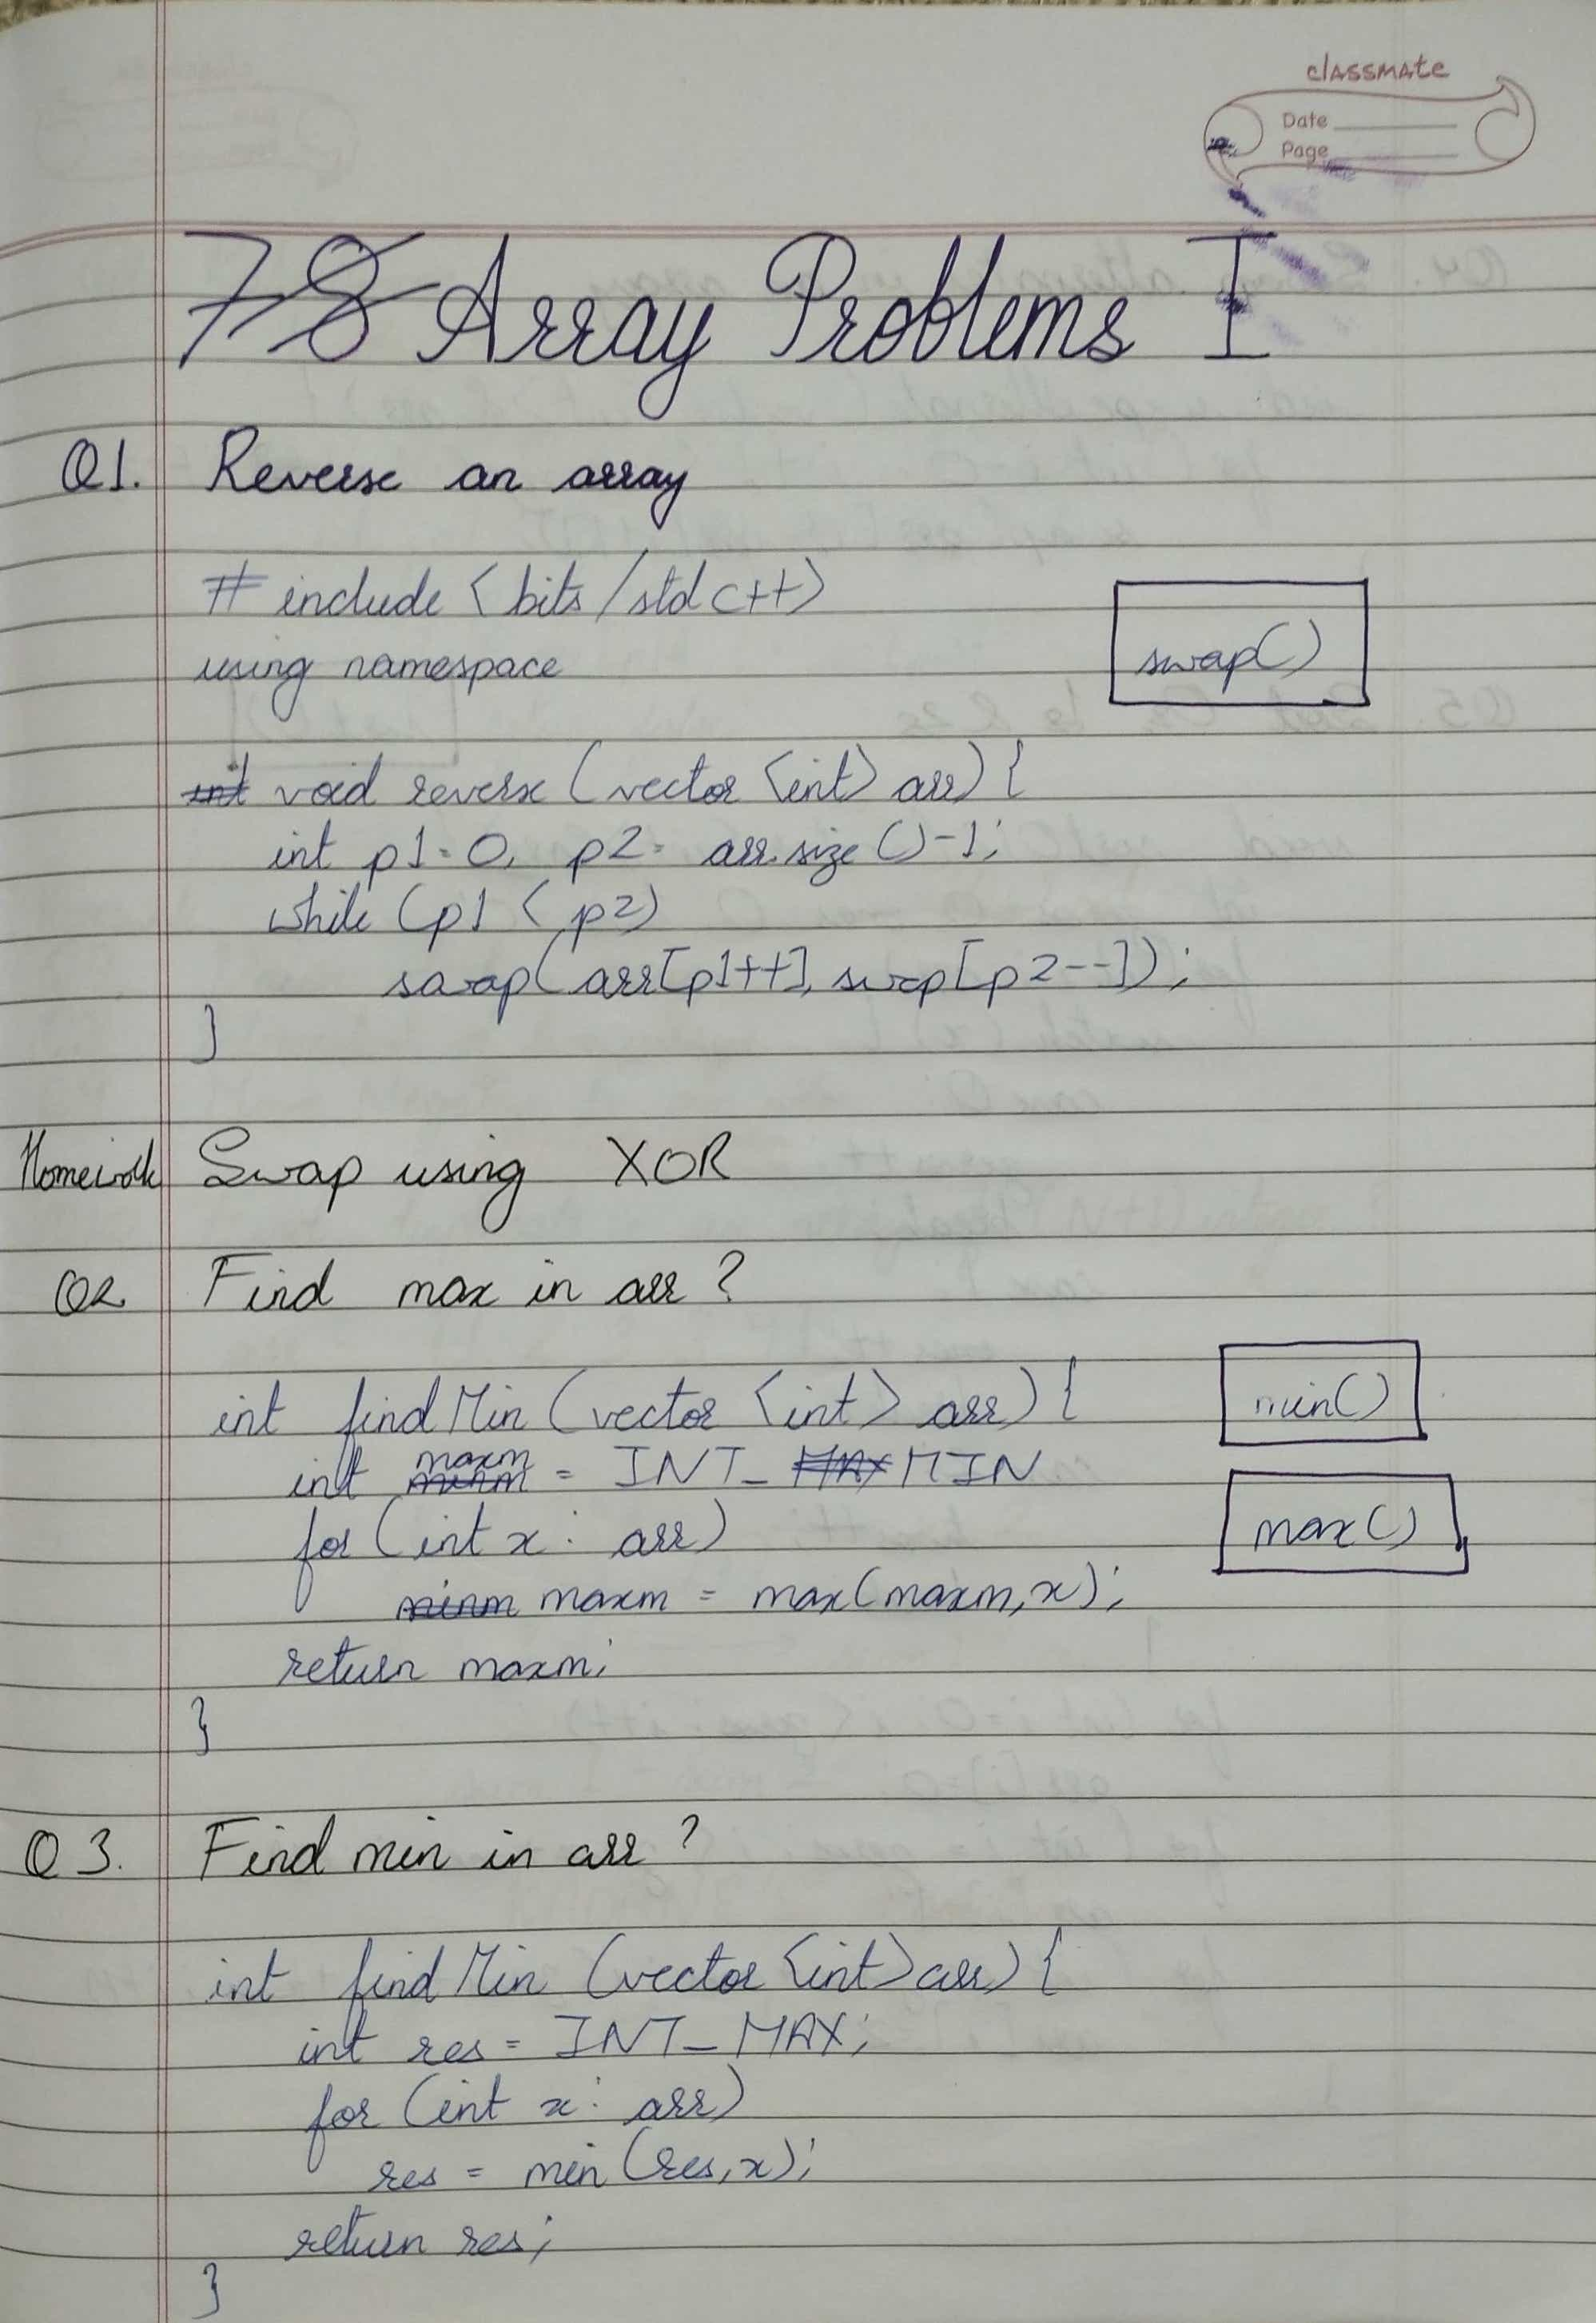 classmate
Date
Page
78 Array Problems I
Q1. Reverse an array
# include <bits/stdc++>
using namespace
swap()
int void reverse (vector <int> arr) {
int p1 = 0, p2 = arr.size ()-1;
while (p1 < p2)
swap(arr[p1++], swap[p2--]);
}
Homework Swap using XOR
Q2 Find max in arr ?
int findMin (vector <int> arr) {
min()
maxm
int minm = INT_ MAX MIN
for (int x : arr)
max()
minm maxm = max(maxm, x);
return maxm;
}
Q3. Find min in arr ?
int findMin (vector <int> arr) {
int res = INT_MAX;
for (int x : arr)
res = min (res, x);
return res;
}